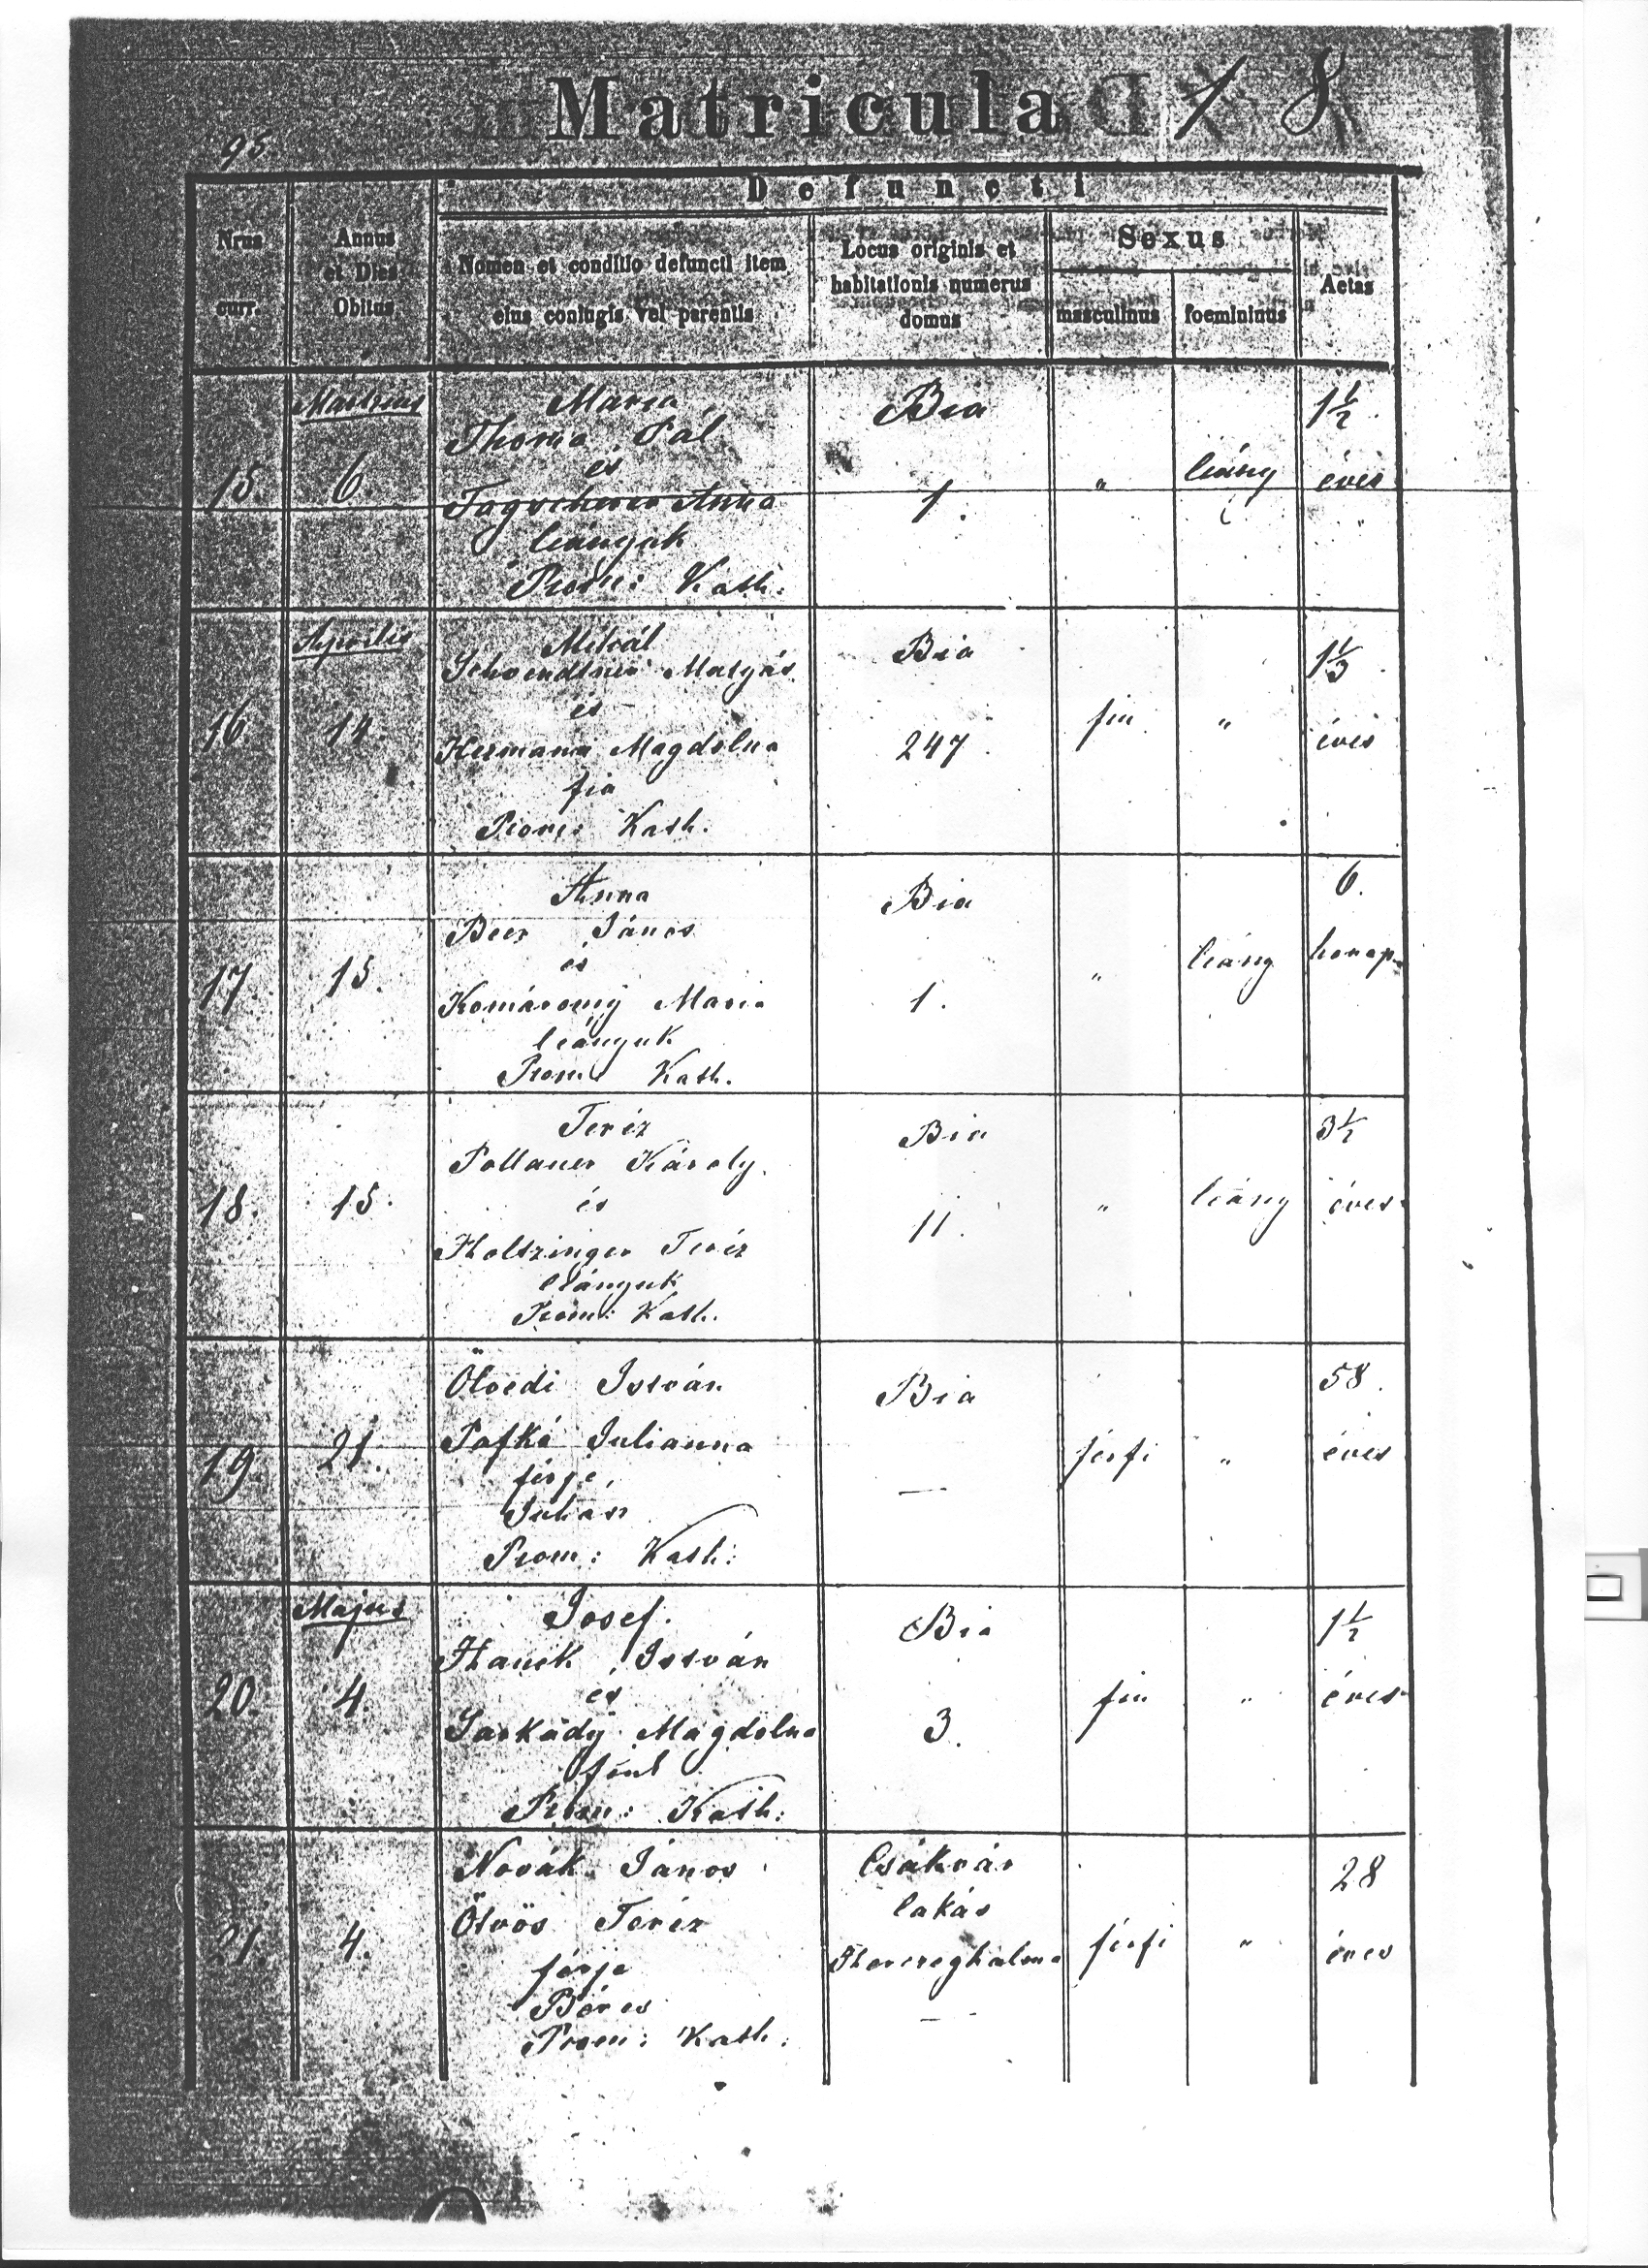 Matricula
1 8
95.
Defuncti
Nrus curr.
Annus et Dies Obitus
Nomen et conditio defuncti item eius coniugis vel parentis
Locus originis et habitationis numerus domus
Sexus
masculinus
foemininus
Aetas
Mártius
15. 6.
Maria
Thoma Pál
és
Anna
leányuk
Rom: Kath:
Bia
1.
" leány
1½ éves
Aprilis
16 14.
Mihál
Matyás
és
Hermann Magdolna
fia
Rom: Kath.
Bia
247.
fiu "
1½ éves
17. 15.
Anna
Beer János
és
Komáromÿ Maria
leányuk
Rom: Kath.
Bia
1.
" leány
6. honap.
18. 15.
Teréz
Pollauer Károly.
és
Holtzinger Teréz
leányuk
Rom: Kath.
Bia
11.
" leány
3½ éves.
19. 21.
Ölvedi István
Pafkó Julianna
férje,
Juhász
Rom: Kath:
Bia
—
férfi "
58. éves
Majus
20. 4.
Josef.
Hauck István
és
Sarkadÿ Magdolna
Rom: Kath:
Bia
3.
fiu "
1½ éves
21. 4.
Novák János
Ötvös Teréz
férje
Béres
Rom: Kath:
Csákvár
lakás
Herczeghalma
—
férfi "
28 éves